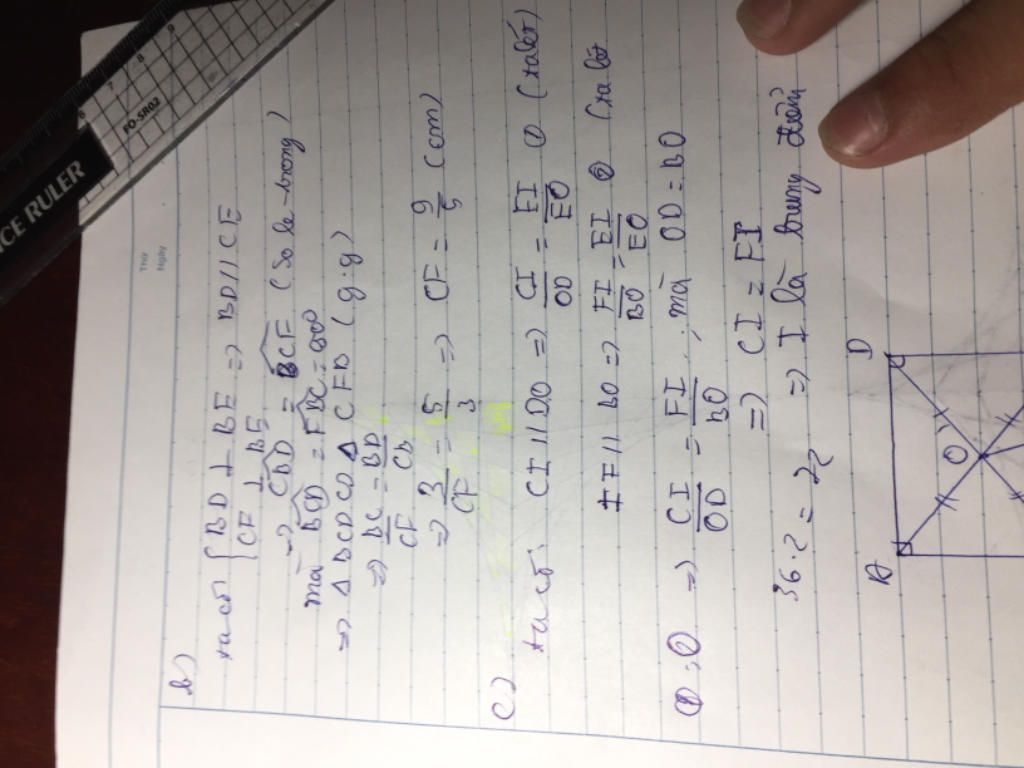 NCE RULER
FO-SR02
Thứ
Ngày
b)
ta có { BD ⊥ BE => BD // CE
CF ⊥ BE
=> CBD = BCF (So le trong)
mà BCD = FBC = 90°
=> Δ BCD ∽ Δ CFB (g.g)
=> BC/CF = BD/CB
=> 3/CF = 5/3 => CF = 9/5 (cm)
c)
ta có: CI // DO => CI/OD = EI/EO ① (talét)
FI // BO => FI/BO = EI/EO ② (talét)
①, ② => CI/OD = FI/BO, mà OD = BO
=> CI = FI
=> I là trung điểm
36.2 = 72
A
D
O